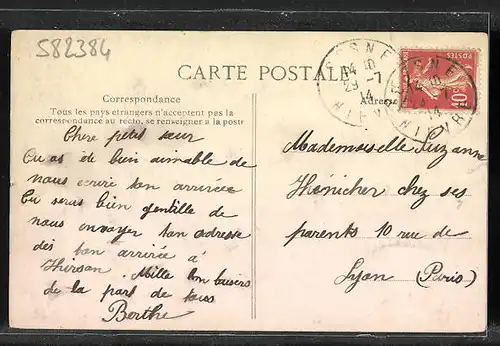 582384
CARTE POSTALE
Correspondance
Tous les pays étrangers n'acceptent pas la
correspondance au recto, se renseigner à la poste
Adresse
COSNE
14 10
29 -7
14
NIÈVRE
POSTES
10
Chere petit sœur
Tu as été bien aimable de
nous ecrire ton arrivée
Tu serus bien gentille de
nous envoyer ton adresse
dès ton arrivée à
Mille bon baisers
de la part de tous
Berthe
Mademoiselle Suzanne
Thénicher chez ses
parents 10 rue de
Lyon (Paris)